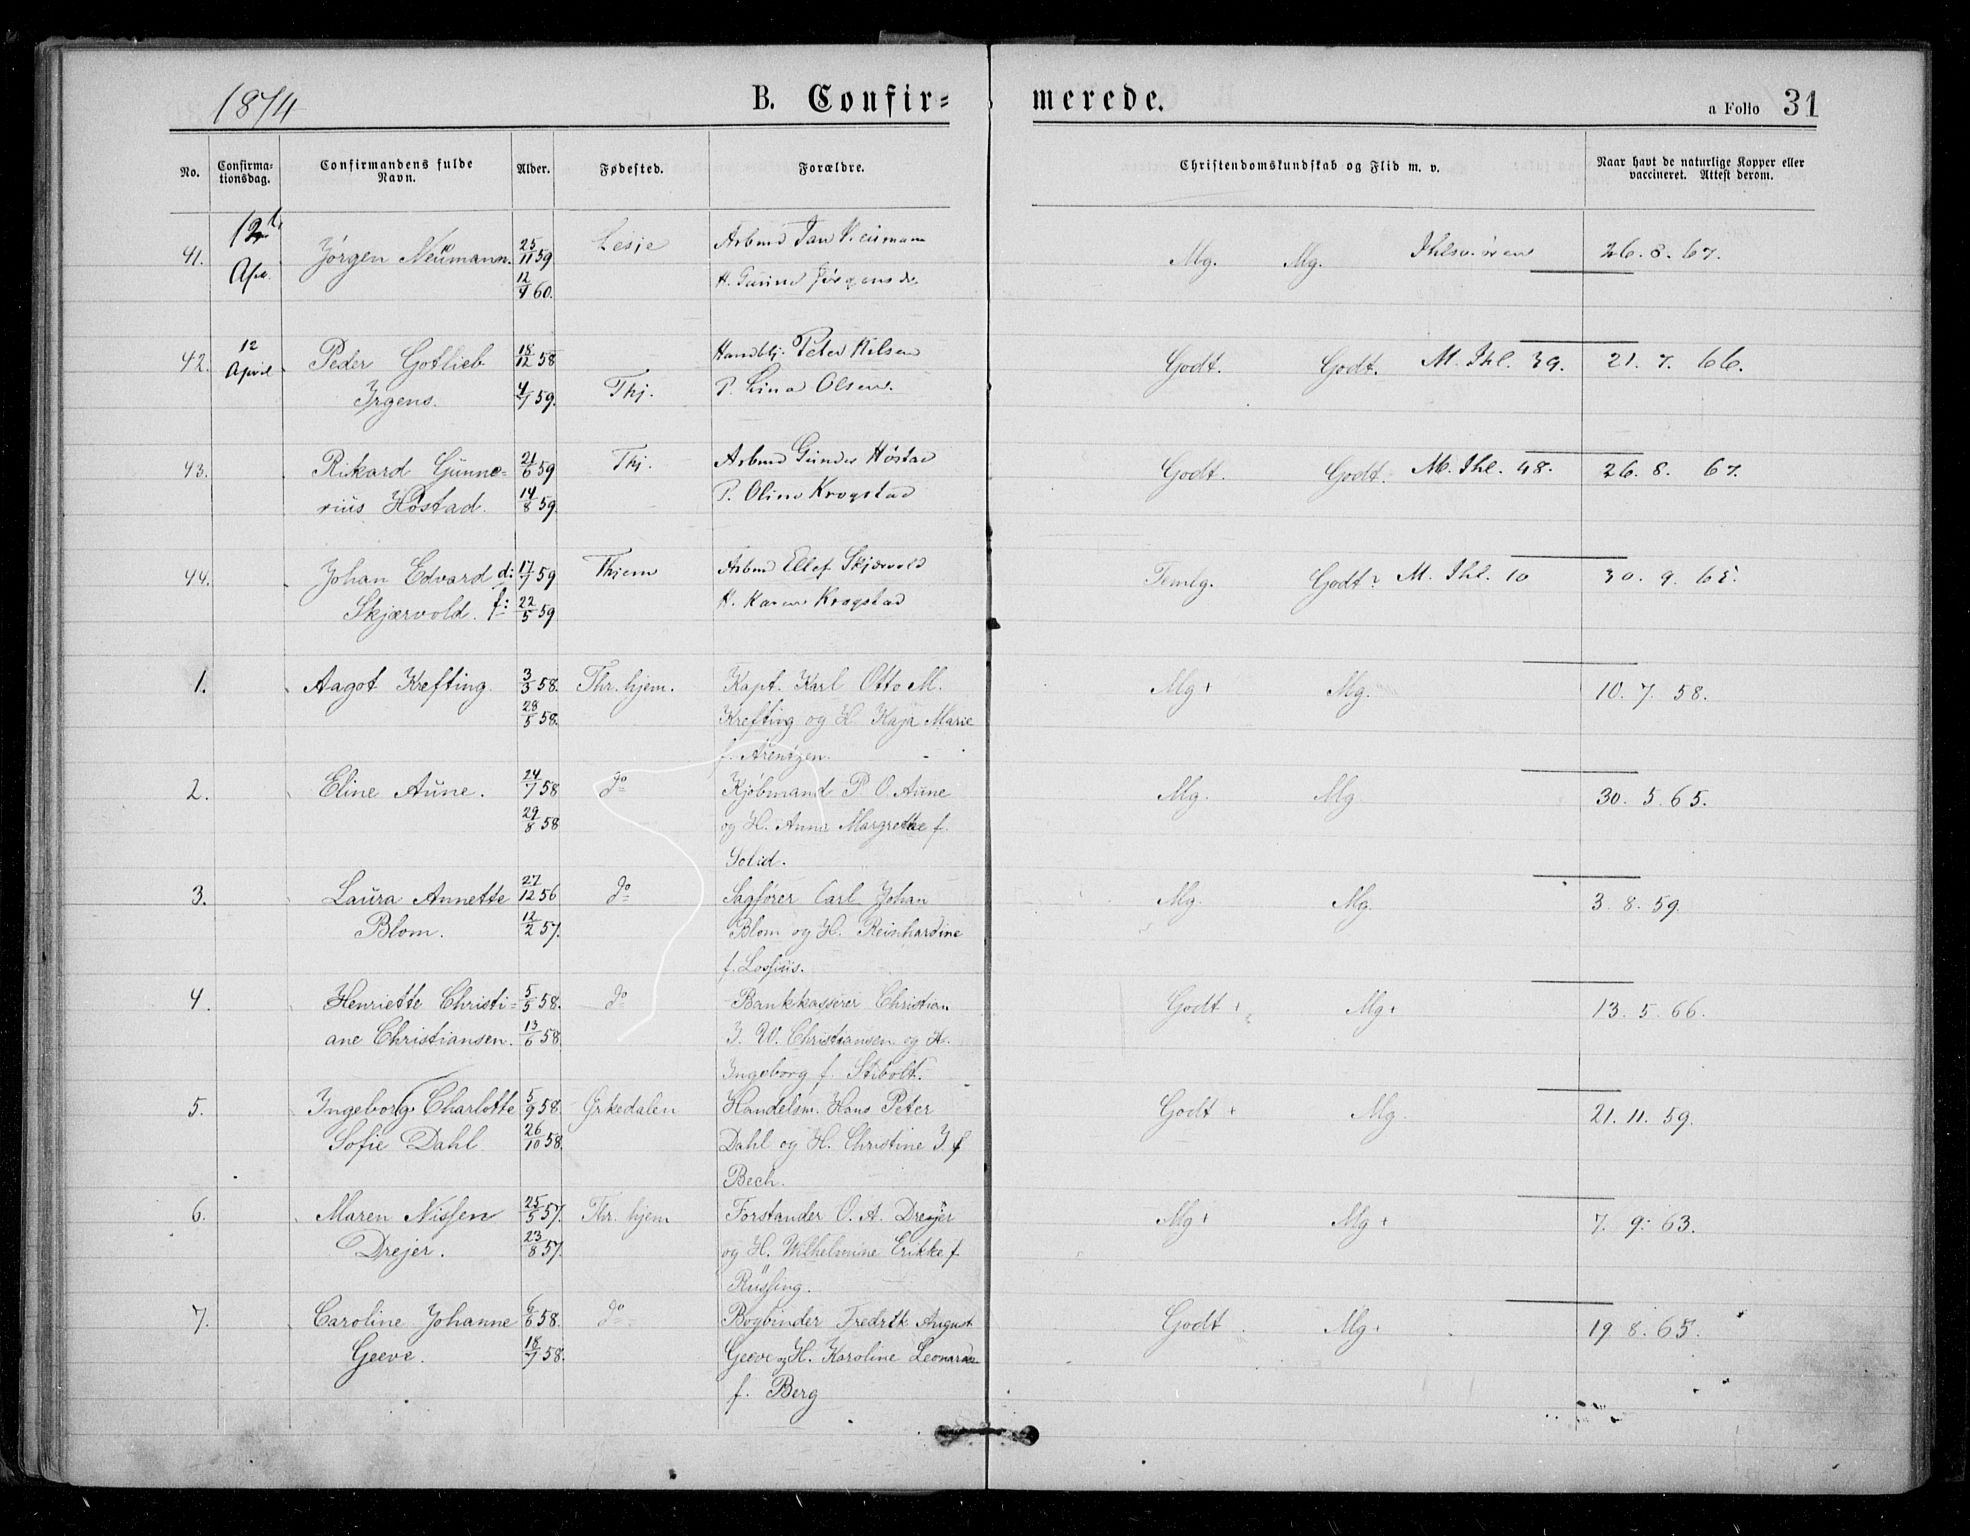 1874
B. Confir=
merede.
a Folio 31
No.
Confirma-
tionsdag.
Confirmandens fulde
Navn.
Alder.
Fødested.
Forældre.
Christendomskundskab og Flid m. v.
Naar havt de naturlige Kopper eller
vaccineret. Attest derom.
41. 12 Jørgen Neümann. 25/11 59 Lesje Arbmd Jan Neumann Mg. Mg. 26. 8. 67.
Apr. 12/4 60. H. Jørgensd.
42. 12 Peder Gotlieb 18/12 58 Handblj. Peter Nilsen Godt. Godt. M. Ihl. 39. 21. 7. 66.
April Irgens. 4/7 59. Thj. P. Lina Olsen.
43. Rikard Günne= 21/6 59 Thj. Arbmd Gunder Høstad Godt. Godt. M. Ihl. 48. 26. 8. 67.
rius Høstad. 14/8 59. P. Oline Krogstad
44. Johan Edvard d: 17/7 59 Thjem Arbmd Ellef Skjærvold Temlg. Godt M. Ihl. 10 30. 9. 65.
Skjærvold. f: 22/5 59 H. Karen Krogstad
1. Aagot Krefting. 3/3 58. Thr. hjem. Kapt. Karl Otto M. Mg+ Mg. 10. 7. 58.
28/5 58. Krefting og H. Kaja Marie
f. Arentzen.
2. Eline Aüne. 24/7 58 do Kjøbmand P. O. Aune Mg. Mg. 30. 5. 65.
29/8 58 og H. Anna Margrethe f.
Solid.
3. Laüra Annette 27/12 56 do Sagfører Carl Johan Mg. Mg. 3. 8. 59.
Blom. 12/2 57. Blom og H. Reinhardine
f. Lossius.
4. Henriette Christi= 5/5 58. do Bankkasserer Christian Godt + Mg+ 13. 5. 66.
ane Christiansen. 13/6 58. J. W. Christiansen og H.
Ingeborg f. Stibolt.
5. Ingeborg Charlotte 5/9 58. Ørkedalen Handelsm. Hans Peter Godt + Mg. 21. 11. 59.
Sofie Dahl. 26/10 58. Dahl og H. Christine J. f
Bech.
6. Maren Nissen 25/5 57. Thr. hjem Forstander O. A. Drejer Mg+ Mg+ 7. 9. 63.
Drejer. 23/8 57. og H. Wilhelmine Erikke f.
Rüssing.
7. Caroline Johanne 6/6 58. do Bogbinder Fredrik August Godt. Mg+ 19. 8. 65.
Geeve. 18/7 58. Geeve og H. Karoline Leonarda
f. Berg